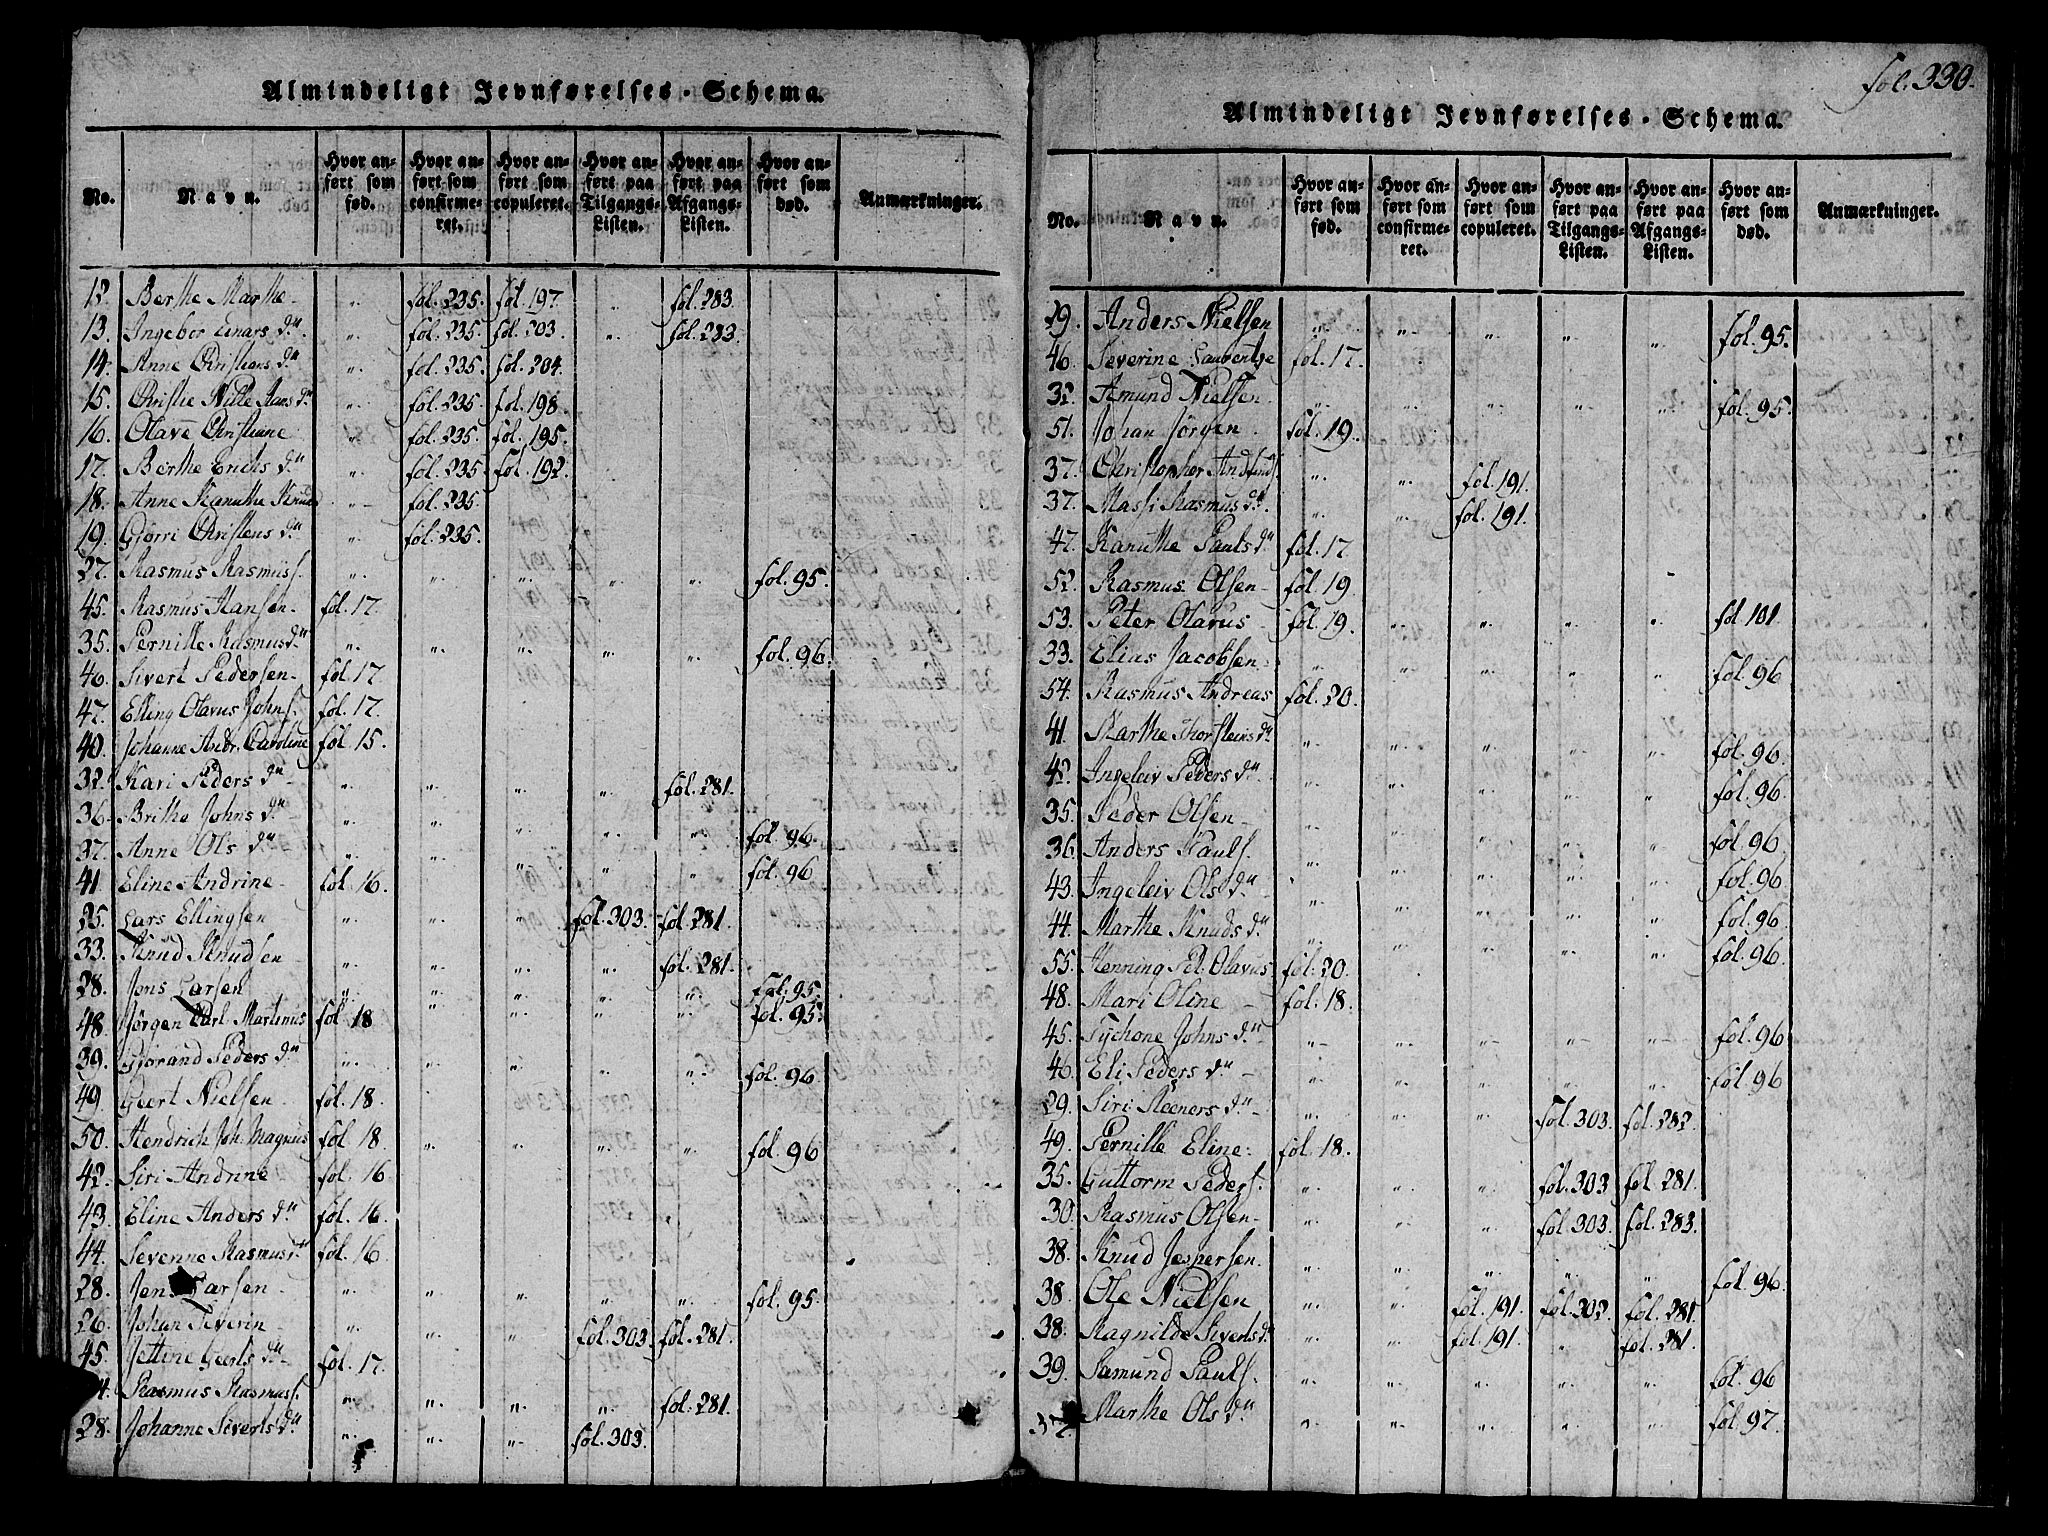 Almindeligt Jevnførelses-Schema.
No. Navn. Hvor anført som fød. Hvor anført som confirmeret. Hvor anført som copuleret. Hvor anført paa Tilgangs-Listen. Hvor anført paa Afgangs-Listen. Hvor anført som død. Anmærkninger.
12. Berthe Marthe - „ fol. 235. fol. 197. „ fol. 283
13. Ingebor Einars d.r „ fol. 235. fol. 203. „ fol. 283.
14. Anne Christians d.r „ fol. 235. fol. 204.
15. Christe Nille Hans d.r „ fol. 235. fol. 198.
16. Olave Christiane „ fol. 235. fol. 195.
17. Berthe Erichs d.r „ fol. 235. fol. 192.
18. Anne Kanuthe Knuds „ fol. 235.
19. Gjørri Christens d.r „ fol. 235.
27. Rasmus Rasmuss. „ „ „ „ „ fol. 95.
45. Rasmus Hansen. fol. 17.
35. Pernille Rasmusd.r „ „ „ „ „ fol. 96.
46. Sivert Pedersen. fol. 17.
47. Elling Olavus Johns. fol. 17.
40. Johanne Andr. Caroline fol. 15.
32. Kari Peders d.r „ „ „ „ fol. 281.
36. Brithe Johns d.r „ „ „ „ „ fol. 96.
37. Anne Ols d.r „ „ „ „ „ fol. 96
41. Eline Andrine fol. 16.
25. Lars Ellingsen „ „ „ fol. 303. fol. 281.
33. Knud Knudsen „ „ „ „ fol. 281.
28. Jons Larsen „ „ „ „ „ fol. 95.
48. Jørgen Carl Martinus fol. 18 „ „ „ „ fol. 95.
39. Gjørand Peders d.r „ „ „ „ „ fol. 96
49. Geert Nielsen fol. 18.
50. Hendrich Joh. Magnus fol. 18. „ „ „ „ fol. 96
42. Siri Andrine fol. 16
43. Eline Anders d.r fol. 16.
44. Severine Rasmusd.r fol. 16
28. Jens Larsen „ „ „ „ „ fol. 95.
26. Johan Severin „ „ „ fol. 303. fol. 281.
45. Jettine Geerts d.r fol. 17.
Rasmus Rasmuss. „ „ „ „ fol. 281.
28. Johanne Siverts d.r „ „ „ fol. 303.
fol. 330.
Almindeligt Jevnførelses-Schema.
No. Navn. Hvor anført som fød. Hvor anført som confirmeret. Hvor anført som copuleret. Hvor anført paa Tilgangs-Listen. Hvor anført paa Afgangs-Listen. Hvor anført som død. Anmærkninger.
29. Anders Nielsen „ „ „ „ „ fol. 95.
46. Severine Laurentze fol. 17.
32. Amund Nielsen „ „ „ „ „ fol. 95.
51. Johan Jörgen fol. 19.
37. Christopher „ „ fol. 191.
37. Massi Rasmus d.r „ „ fol. 191.
47. Kanuthe Pauls d.r fol. 17.
52. Rasmus Olsen fol. 19.
53. Peter Olavus fol. 19. „ „ „ „ fol. 101.
33. Elias Jacobsen „ „ „ „ „ fol. 96
54. Rasmus Andreas fol. 20.
41. Marthe Thorsteins d.r „ „ „ „ „ fol. 96.
42. Ingeleiv Peders d.r „ „ „ „ „ fol. 96.
35. Peder Olsen „ „ „ „ „ fol. 96
36. Anders Pauls. „ „ „ „ „ fol. 96.
43. Ingeleiv Ols d.r „ „ „ „ „ fol. 96
44. Marthe Knuds d.r „ „ „ „ „ fol. 96.
55. Henning Pet. Olavus fol. 20.
48. Mari Oline - fol. 18.
45. Tychone Johns d.r „ „ „ „ „ fol. 96
46. Eli Peders d.r „ „ „ „ „ fol. 96
29. Siri Reeners d.r „ „ „ fol. 303. fol. 282.
49. Pernille Eline. fol. 18.
35. Guttorm Peders. „ „ „ fol. 303 fol. 281.
30. Rasmus Olsen „ „ „ fol. 303. fol. 283.
38. Knud Jespersen. „ „ „ „ „ fol. 96.
38. Ole Nielsen „ „ fol. 191. fol. 302. fol. 281.
38. Ragnilde Siverts d.r „ „ fol. 191. „ fol. 281.
39. Samund Pauls. „ „ „ „ „ fol. 96
Marthe Ols d.r „ „ „ „ „ fol. 97.